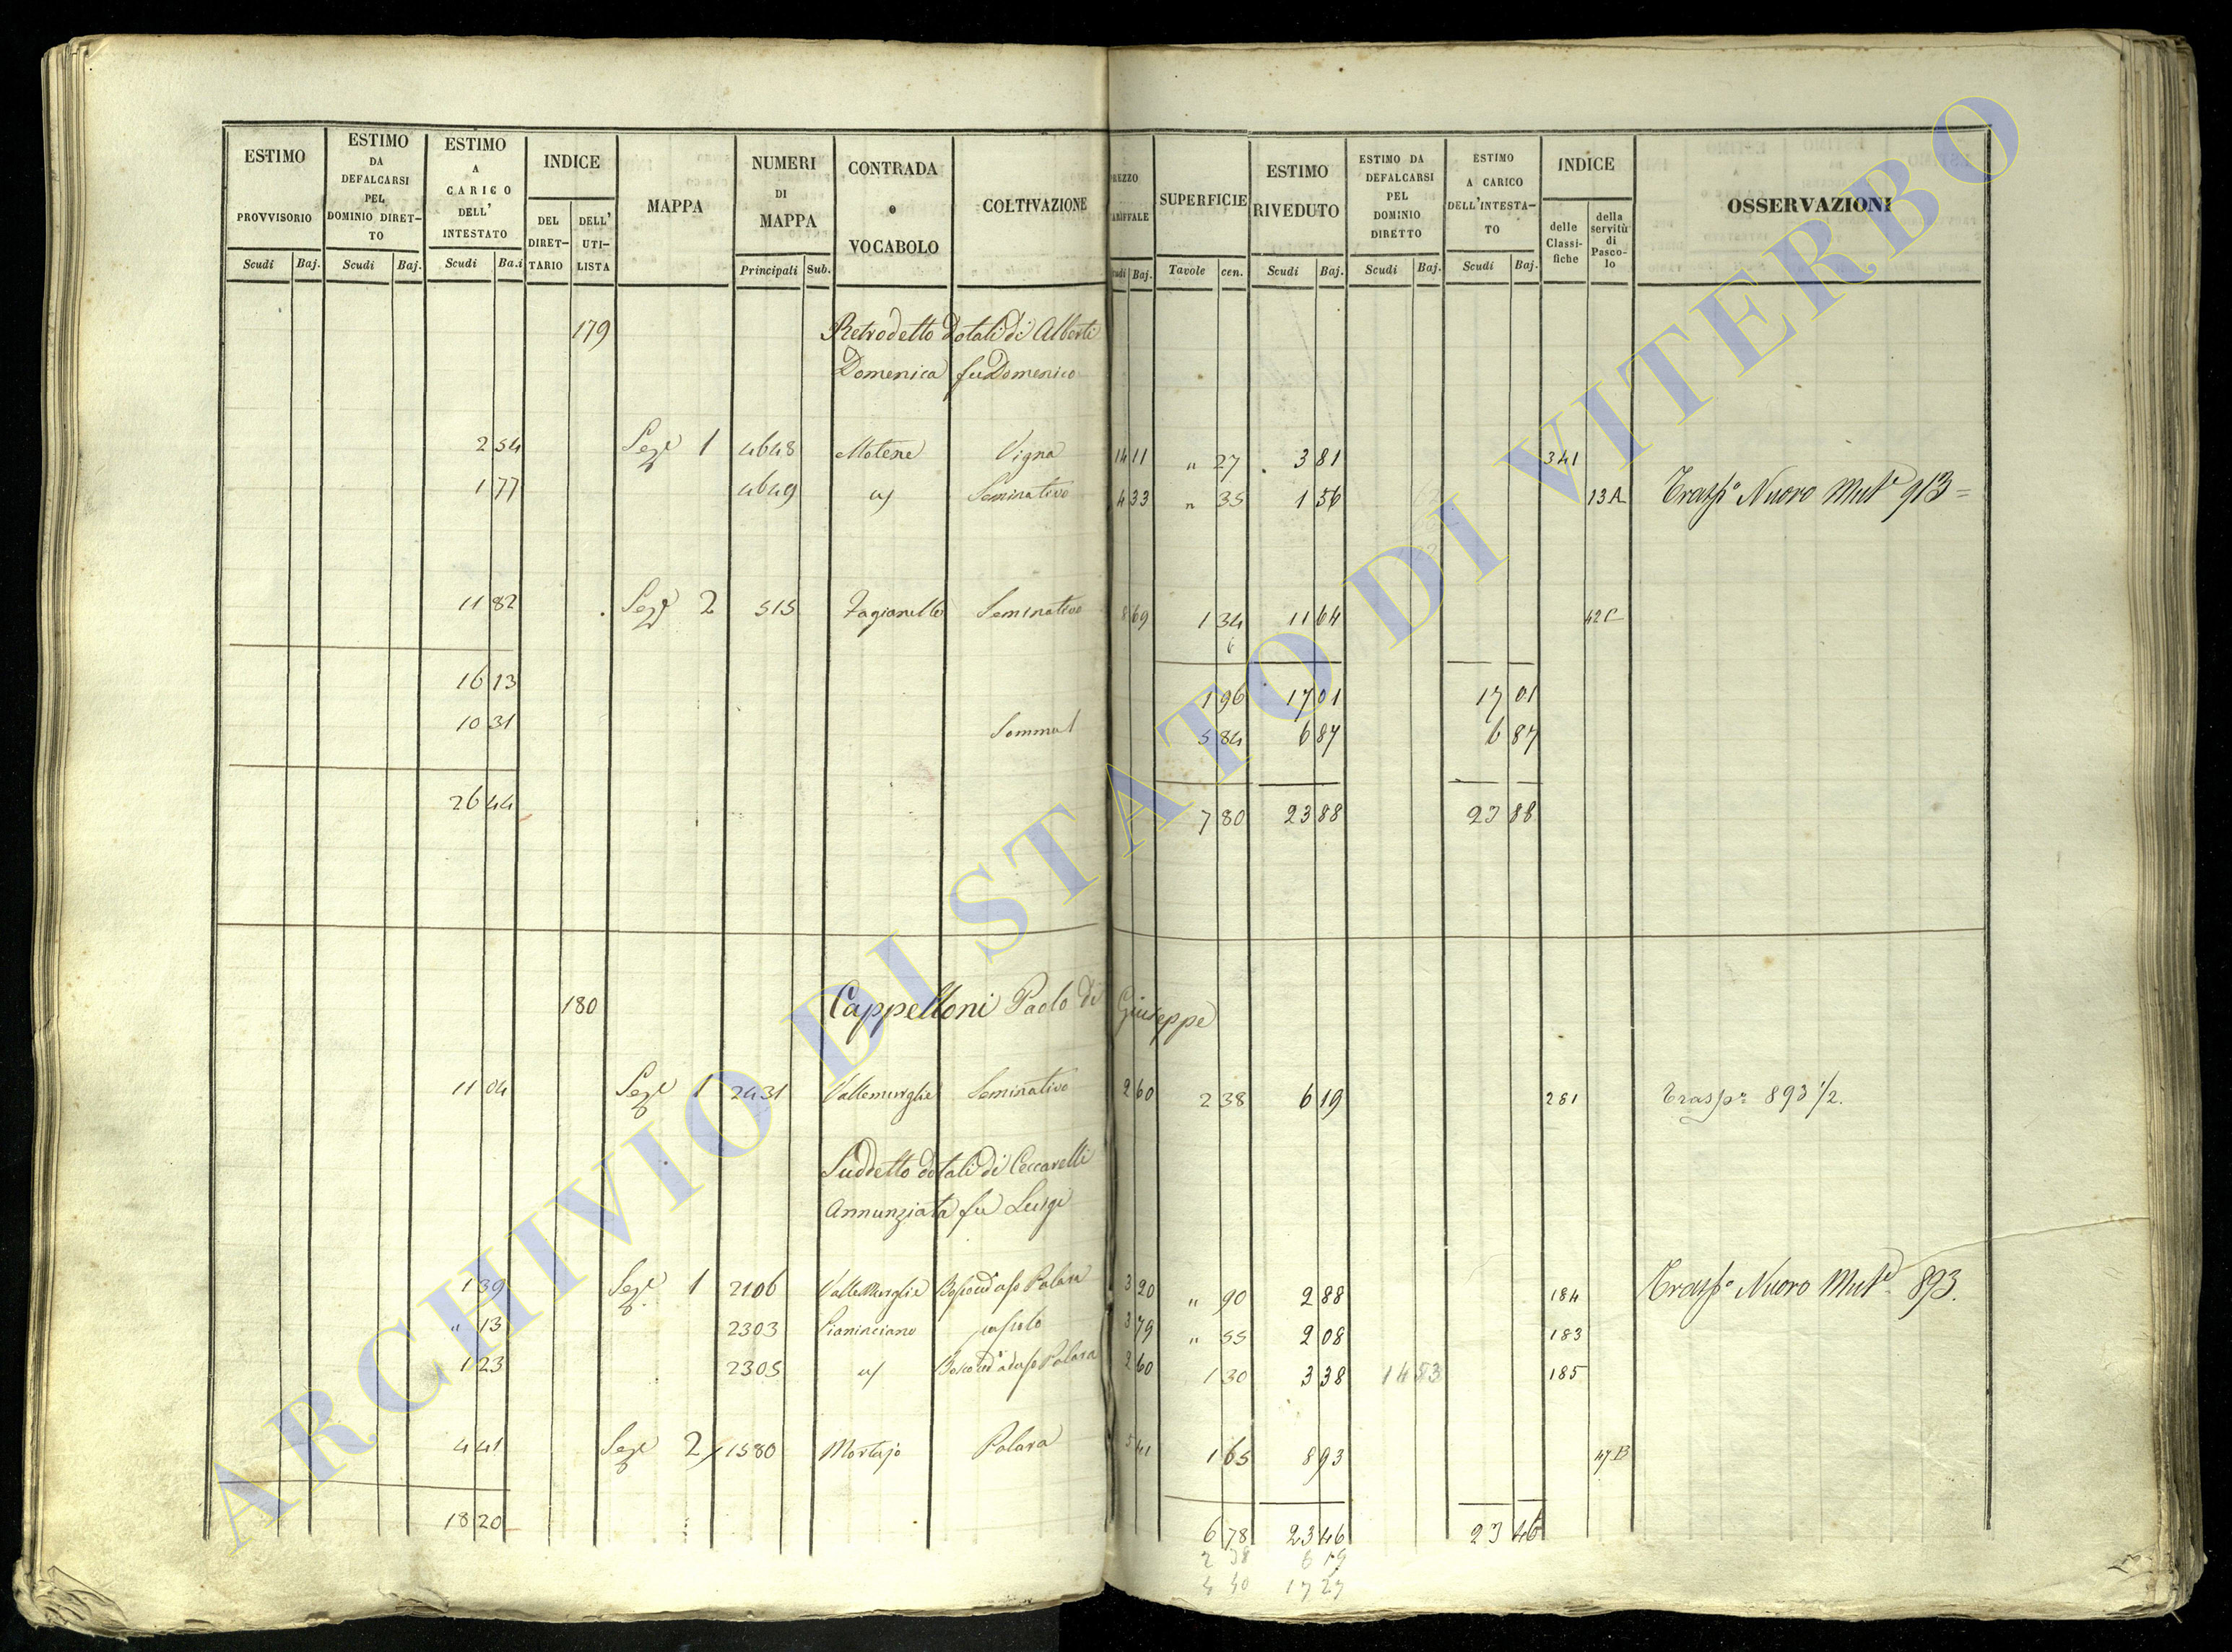 ESTIMO PROVVISORIO Scudi Baj.
ESTIMO DA DEFALCARSI PEL DOMINIO DIRET-TO Scudi Baj.
ESTIMO A CARICO DELL' INTESTATO Scudi Ba.i
INDICE DEL DIRET-TARIO DELL' UTI-LISTA
MAPPA
NUMERI DI MAPPA Principali Sub.
CONTRADA e VOCABOLO
COLTIVAZIONE
REZZO ARIFFALE udi Baj.
SUPERFICIE Tavole cen.
ESTIMO RIVEDUTO Scudi Baj.
ESTIMO DA DEFALCARSI PEL DOMINIO DIRETTO Scudi Baj.
ESTIMO A CARICO DELL'INTESTA-TO Scudi Baj.
INDICE delle Classi-fiche della servitù di Pasco-lo
OSSERVAZIONI
179 Retrodetto dotali di Alberti
Domenica fu Domenico
2 54 Sez.e 1 4648 Vigna 14 11 " 27 3 81 341
1 77 4649 Seminativo 4 33 " 35 1 56 13A Trasp.o Nuovo Mut.e 913=
11 82 Sez.e 2 515 Fagianello Seminativo 8 69 1 34 11 64 42C
6
16 13 1 96 17 01 17 01
10 31 Somma 5 84 6 87 6 87
26 44 7 80 23 88 23 88
180 Cappelloni Paolo di Giuseppe
11 04 Sez.e 1 2431 Vallemurghe Seminativo 2 60 2 38 6 19 281 Trasp.o 893 1/2.
Suddetto dotali di Ceccarelli
Annunziata fu Luigi
1 39 Sez.e 1 2106 3 20 " 90 2 88 184 Trasp.o Nuovo Mut.e 893.
" 13 2303 Pianinciano pascolo 3 79 " 55 2 08 183
1 23 2305 2 60 1 30 3 38 14 53 185
4 41 Sez.e 2 1580 Mortajo 5 41 1 65 8 93 47B
18 20 6 78 23 46 23 46
2 38 6 19
4 40 17 27
ARCHIVIO DI STATO DI VITERBO